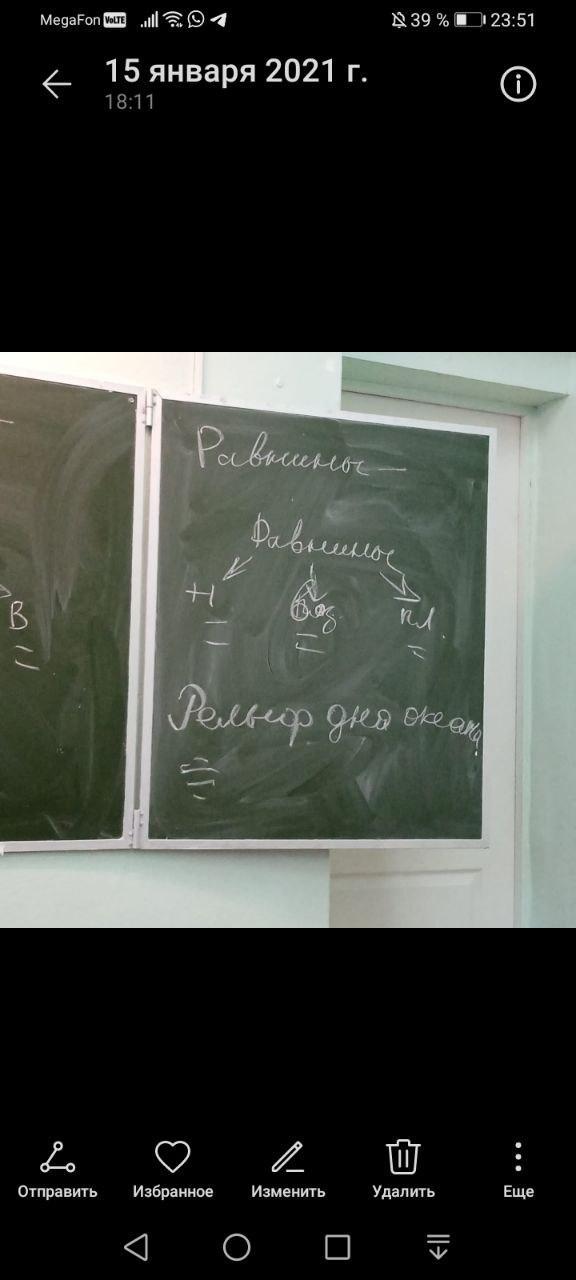 MegaFon VoLTE 39 % 23:51
15 января 2021 г.
18:11
Равнины —
Равнины
Н Воз. пл.
В
Рельеф дна океана
Отправить Избранное Изменить Удалить Еще